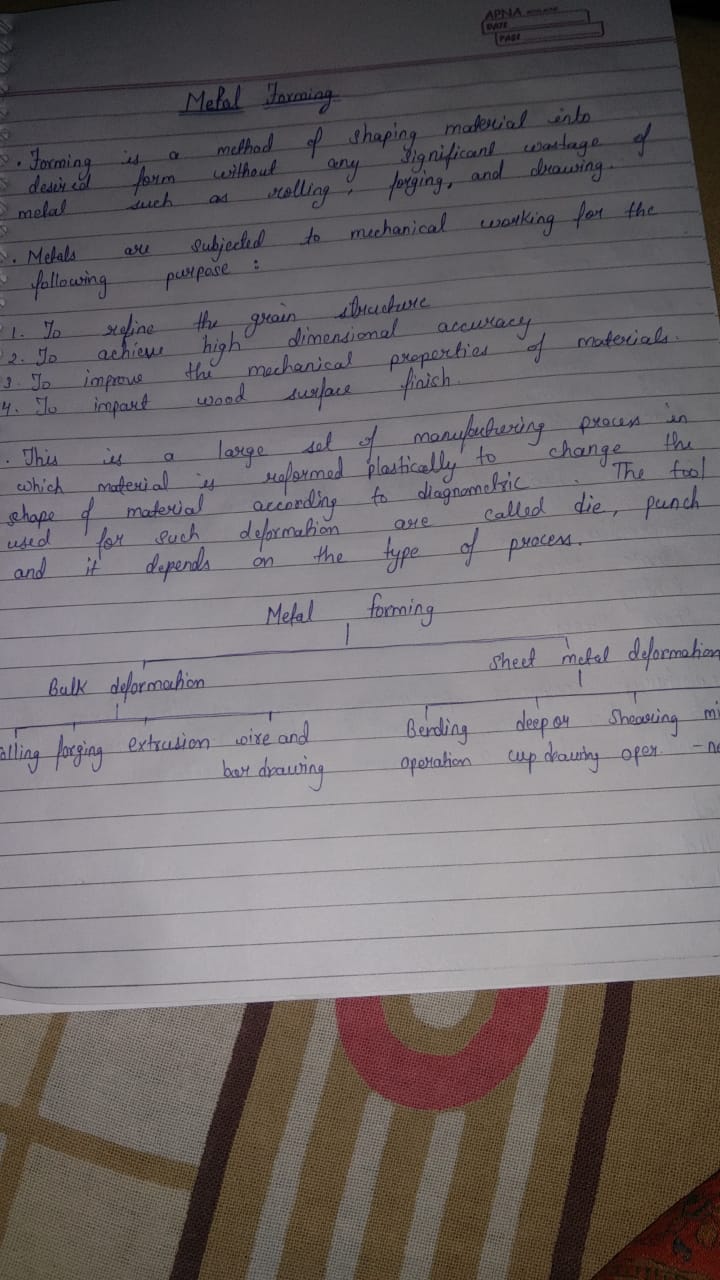 APNA
DATE
PAGE
Metal Forming
. Forming is a method of shaping material into
desired form without any significant wastage of
metal such as rolling, forging, and drawing.
. Metals are subjected to mechanical working for the
following purpose :
1. To refine the grain structure
2. To achieve high dimensional accuracy
3. To improve the mechanical properties of materials.
4. To impart wood surface finish.
. This is a large set of manufuthering process in
which material is reformed plastically to change the
shape of material according to diagnometric . The tool
used for such deformation are called die, punch
and it depends on the type of process.
Metal forming
Bulk deformation Sheet metal deformation
alling forging extrusion wire and Bending deep or Shearing mi
bar drawing operation cup drawing oper. -ne